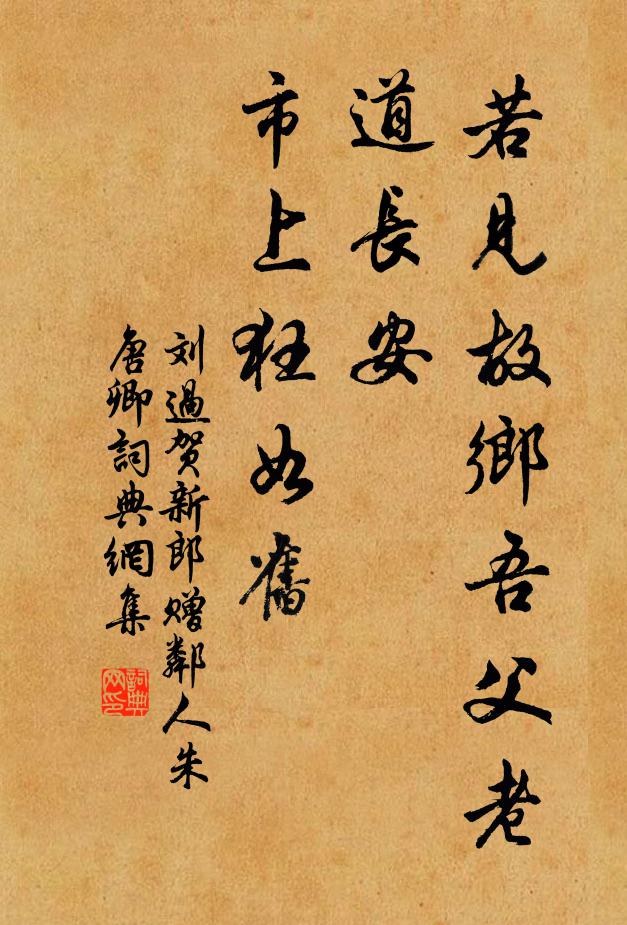 若見故鄉吾父老
道長安
市上狂如舊
刘過贺新郎赠鄰人朱
唐卿詞典網集
詞典
网印